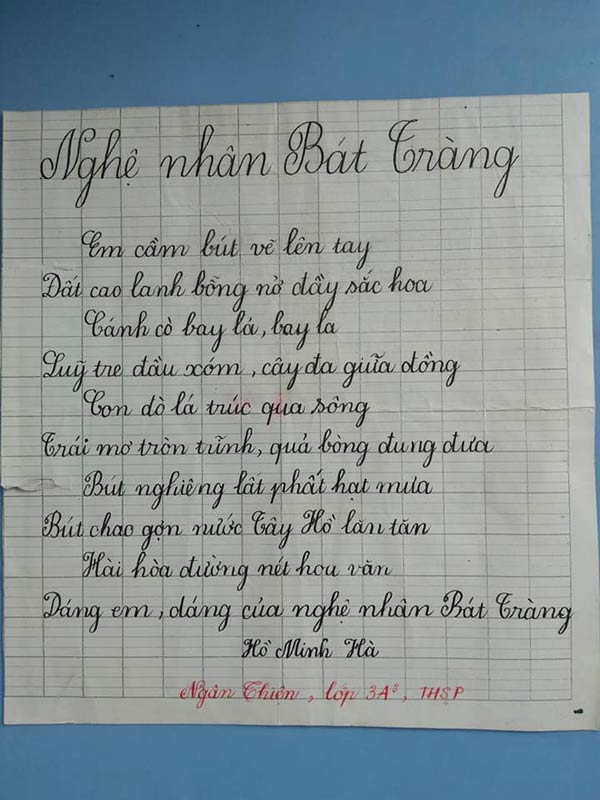 Nghệ nhân Bát Tràng
Em cầm bút vẽ lên tay
Đất cao lanh bỗng nở đầy sắc hoa
Cánh cò bay lả, bay la
Luỹ tre đầu xóm, cây đa giữa đồng
Con đò lá trúc qua sông
Trái mơ tròn trĩnh, quả bòng đung đưa
Bút nghiêng lất phất hạt mưa
Bút chao gợn nước Tây Hồ lăn tăn
Hài hòa đường nét hoa văn
Dáng em, dáng của nghệ nhân Bát Tràng
Hồ Minh Hà
Ngân Thiện, lớp 3A³, THSP